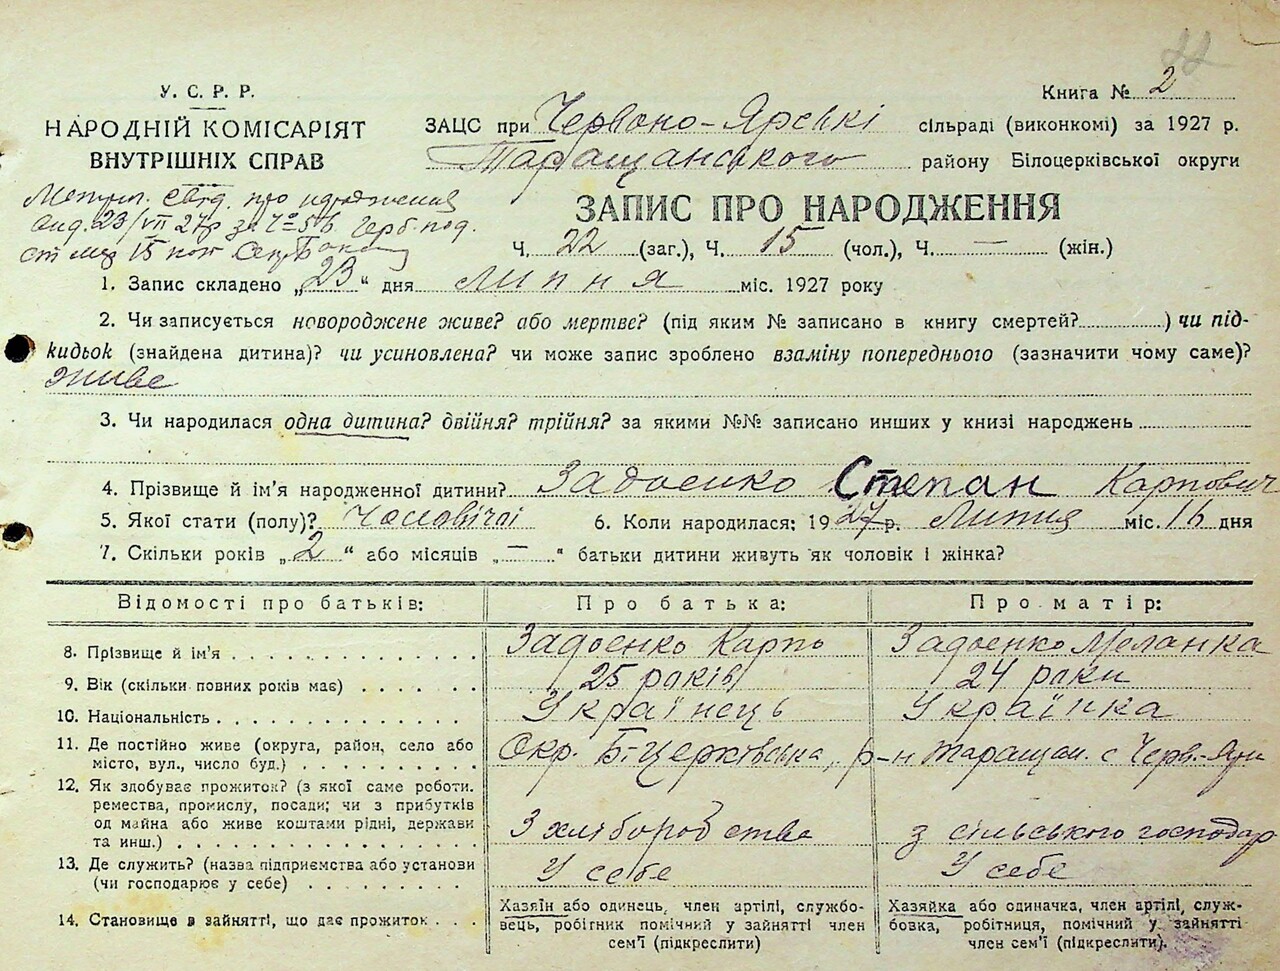 22
У. С. Р. Р.
НАРОДНІЙ КОМІСАРІЯТ
ВНУТРІШНІХ СПРАВ
Книга № 2
ЗАЦС при Червоно-Ярській сільраді (виконкомі) за 1927 р.
Таращанського району Білоцерківської округи
про народження
вид. 23/VII 27р за
15
ЗАПИС ПРО НАРОДЖЕННЯ
Ч. 22 (заг.), Ч. 15 (чол.), Ч. — (жін.)
1. Запис складено „23“ дня Липня міс. 1927 року
2. Чи записується новороджене живе? або мертве? (під яким № записано в книгу смертей?) чи під-
кидьок (знайдена дитина)? чи усиновлена? чи може запис зроблено взаміну попереднього (зазначити чому саме)?
живе
3. Чи народилася одна дитина? двійня? трійня? за якими №№ записано инших у книзі народжень
4. Прізвище й ім'я народженної дитини? Задоенко Степан Карпович
5. Якої стати (полу)? Чоловічої 6. Коли народилася: 1927 р. Липня міс. 16 дня
7. Скільки років „2“ або місяців „—“ батьки дитини живуть як чоловік і жінка?
Відомості про батьків: Про батька: Про матір:
8. Прізвище й ім'я Задоенко Карпо Задоенко Меланка
9. Вік (скільки повних років має) 25 років 24 роки
10. Національність Українець Українка
11. Де постійно живе (округа, район, село або
місто, вул., число буд.) Окр. Б-Церківська, р-н Таращан. с Черв.-Яри
12. Як здобуває прожиток? (з якої саме роботи.
ремества, промислу, посади; чи з прибутків
од майна або живе коштами рідні, держави
та инш.) З хліборобства з сільського господар
13. Де служить? (назва підприємства або установи
(чи господарює у себе) У себе У себе
14. Становище в зайнятті, що дає прожиток
Хазяїн або одинець, член артілі, службо-
вець, робітник помічний у зайнятті член
сем'ї (підкреслити)
Хазяйка або одиначка, член артілі, служ-
бовка, робітниця, помічний у зайнятті
член сем'ї (підкреслити).